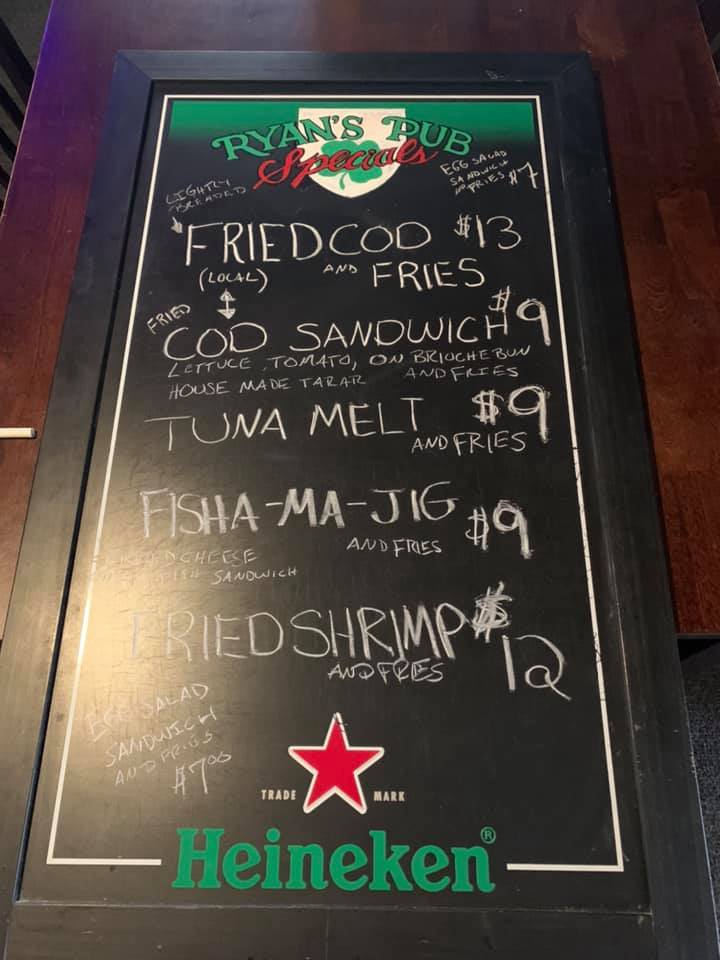 RYAN'S PUB
Specials
EGG SALAD
SANDWICH
FRIES $7
LIGHTLY
BREADED
FRIED COD $13
(LOCAL) AND FRIES
FRIED
COD SANDWICH $9
LETTUCE, TOMATO, ON BRIOCHE BUN
HOUSE MADE TARAR AND FRIES
TUNA MELT $9
AND FRIES
FISHA-MA-JIG $9
AND FRIES
CHEESE
SANDWICH
FRIED SHRIMP $12
AND FRIES
EGG SALAD
SANDWICH
AND FRIES
$7.00
TRADE MARK
Heineken®